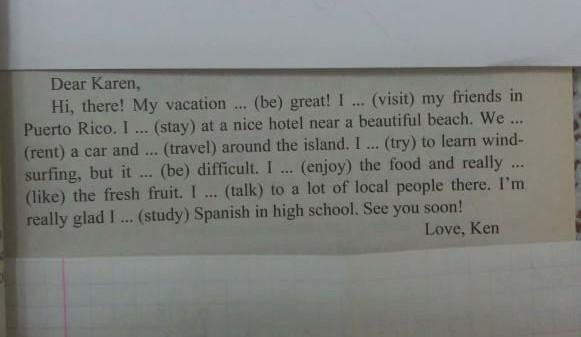 Dear Karen,
Hi, there! My vacation ... (be) great! I ... (visit) my friends in
Puerto Rico. I ... (stay) at a nice hotel near a beautiful beach. We ...
(rent) a car and ... (travel) around the island. I ... (try) to learn wind-
surfing, but it ... (be) difficult. I ... (enjoy) the food and really ...
(like) the fresh fruit. I ... (talk) to a lot of local people there. I'm
really glad I ... (study) Spanish in high school. See you soon!
Love, Ken